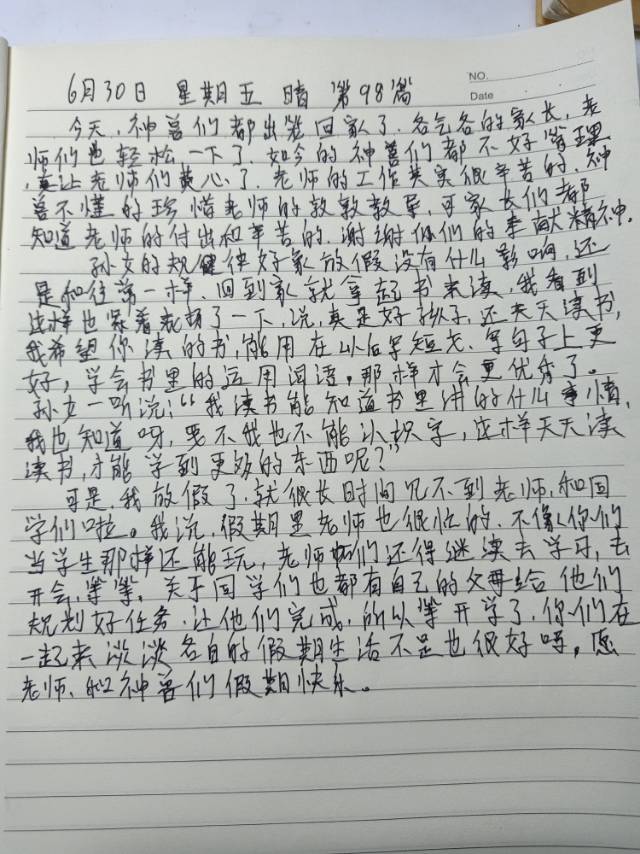 NO.
Date
6月30日 星期五 晴 第98篇
今天,神兽们都出笼回家了.各气各的家长,老
师们也轻松一下了.如今的神兽们都不好管理
,真让老师们费心了.老师的工作其实很辛苦的,神
兽不懂的珍惜老师的敦敦教导,可家长们都
知道老师的付出和辛苦的.谢谢你们的奉献精神.
孙文的规律好象放假没有什么影响,还
是和往常一样.回到家就拿起书来读,我看到
这样也跟着表扬了一下,说,真是好孩子,还天天读书,
我希望你读的书,能用在以后写短文、写句子上更
好,学会书里的运用词语,那样才会更优秀了。
孙文一听说:“我读书能知道书里讲的什么事情,
我也知道呀,要不我也不能认识字,这样天天读
读书,才能学到更多的东西呢?”
可是,我放假了,就很长时间见不到老师,和同
学们啦。我说,假期里老师也很忙的.不像你们
当学生那样还能玩,老师们还得继续去学习,去
开会,等等,关于同学们也都有自己的父母给他们
规划好任务.让他们完成,所以等开学了,你们在
一起来谈谈各自的假期生活不是也很好吗,愿
老师、和神兽们假期快乐。